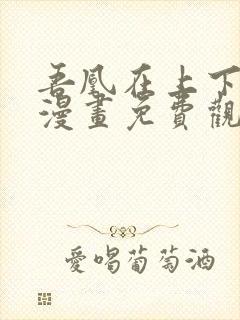 吾凰在上下
漫畫免費觀
愛喝葡萄酒